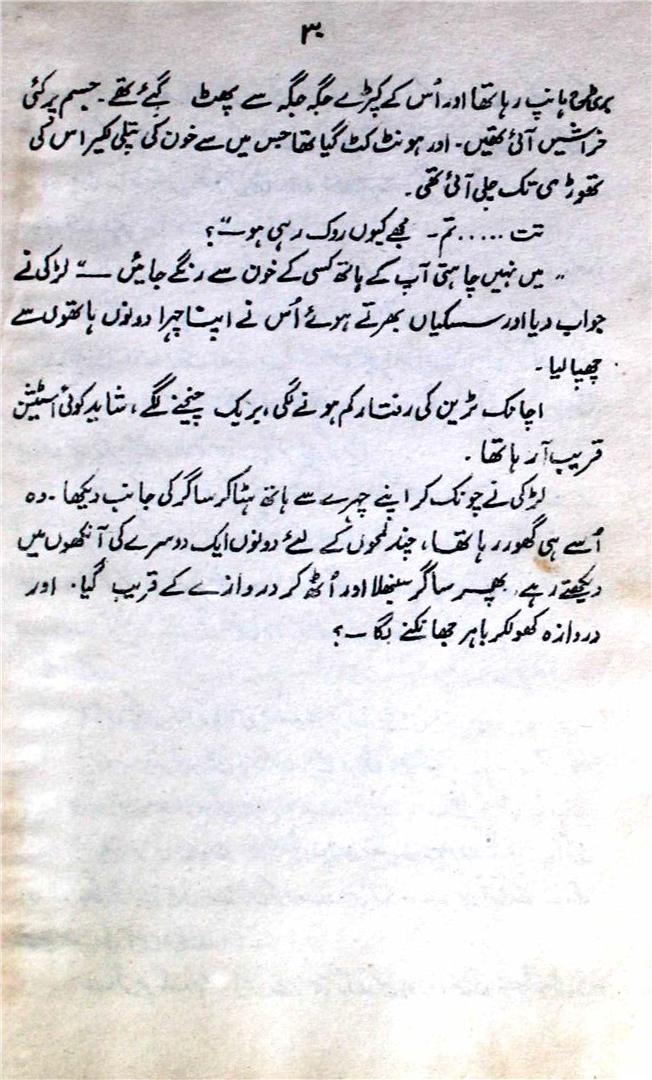 ۳۰
بری طرح ہانپ رہا تھا اور اُس کے کپڑے جگہ جگہ سے پھٹ گئے تھے۔ جسم پر کئی
خراشیں آئی تھیں۔ اور ہونٹ کٹ گیا تھا جس میں سے خون کی پتلی لکیر اس کی
تھوڑی تک چلی آئی تھی۔
تت ..... تم۔ مجھے کیوں روک رہی ہو۔"؟
" میں نہیں چاہتی آپ کے ہاتھ کسی کے خون سے رنگے جائیں ــ" لڑکی نے
جواب دیا اور سسکیاں بھرتے ہوئے اُس نے اپنا چہرا دونوں ہاتھوں سے
چھپا لیا۔
اچانک ٹرین کی رفتار کم ہونے لگی، بریک چیخنے لگے، شاید کوئی اسٹیشن
قریب آ رہا تھا۔
لڑکی نے چونک کر اپنے چہرے سے ہاتھ ہٹا کر ساگر کی جانب دیکھا۔ وہ
اُسے ہی گھور رہا تھا، چند لمحوں کے لئے دونوں ایک دوسرے کی آنکھوں میں
دیکھتے رہے، پھر ساگر سنبھلا اور اُٹھ کر دروازے کے قریب گیا۔ اور
دروازہ کھولکر باہر جھانکنے لگا ــ؟